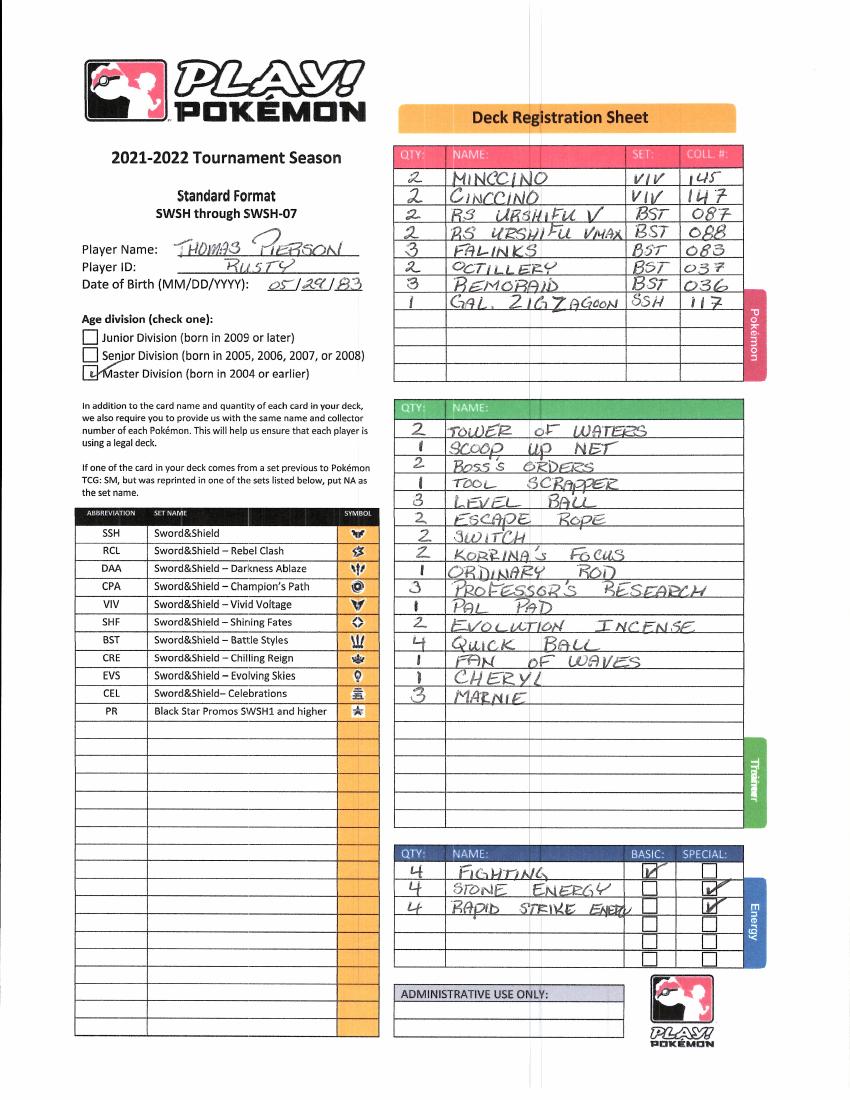 PLAY!
POKÉMON
2021-2022 Tournament Season
Standard Format
SWSH through SWSH-07
Player Name: THOMAS PIERSON
Player ID: RUSTY
Date of Birth (MM/DD/YYYY): 05/29/83
Age division (check one):
Junior Division (born in 2009 or later)
Senior Division (born in 2005, 2006, 2007, or 2008)
Master Division (born in 2004 or earlier)
In addition to the card name and quantity of each card in your deck,
we also require you to provide us with the same name and collector
number of each Pokémon. This will help us ensure that each player is
using a legal deck.
If one of the card in your deck comes from a set previous to Pokémon
TCG: SM, but was reprinted in one of the sets listed below, put NA as
the set name.
ABBREVIATION SET NAME SYMBOL
SSH Sword&Shield
RCL Sword&Shield – Rebel Clash
DAA Sword&Shield – Darkness Ablaze
CPA Sword&Shield – Champion's Path
VIV Sword&Shield – Vivid Voltage
SHF Sword&Shield – Shining Fates
BST Sword&Shield – Battle Styles
CRE Sword&Shield – Chilling Reign
EVS Sword&Shield – Evolving Skies
CEL Sword&Shield– Celebrations
PR Black Star Promos SWSH1 and higher
Deck Registration Sheet
QTY: NAME: SET: COLL. #:
2 MINCCINO VIV 145
2 CINCCINO VIV 147
2 RS URSHIFU V BST 087
2 RS URSHIFU VMAX BST 088
3 FALINKS BST 083
2 OCTILLERY BST 037
3 REMORAID BST 036
1 GAL. ZIGZAGOON SSH 117
Pokémon
QTY: NAME:
2 TOWER OF WATERS
1 SCOOP UP NET
2 BOSS'S ORDERS
1 TOOL SCRAPPER
3 LEVEL BALL
2 ESCAPE ROPE
2 SWITCH
2 KORRINA'S FOCUS
1 ORDINARY ROD
3 PROFESSOR'S RESEARCH
1 PAL PAD
2 EVOLUTION INCENSE
4 QUICK BALL
1 FAN OF WAVES
1 CHERYL
3 MARNIE
Trainer
QTY: NAME: BASIC: SPECIAL:
4 FIGHTING
4 STONE ENERGY
4 RAPID STRIKE ENERGY
Energy
ADMINISTRATIVE USE ONLY:
PLAY!
POKÉMON